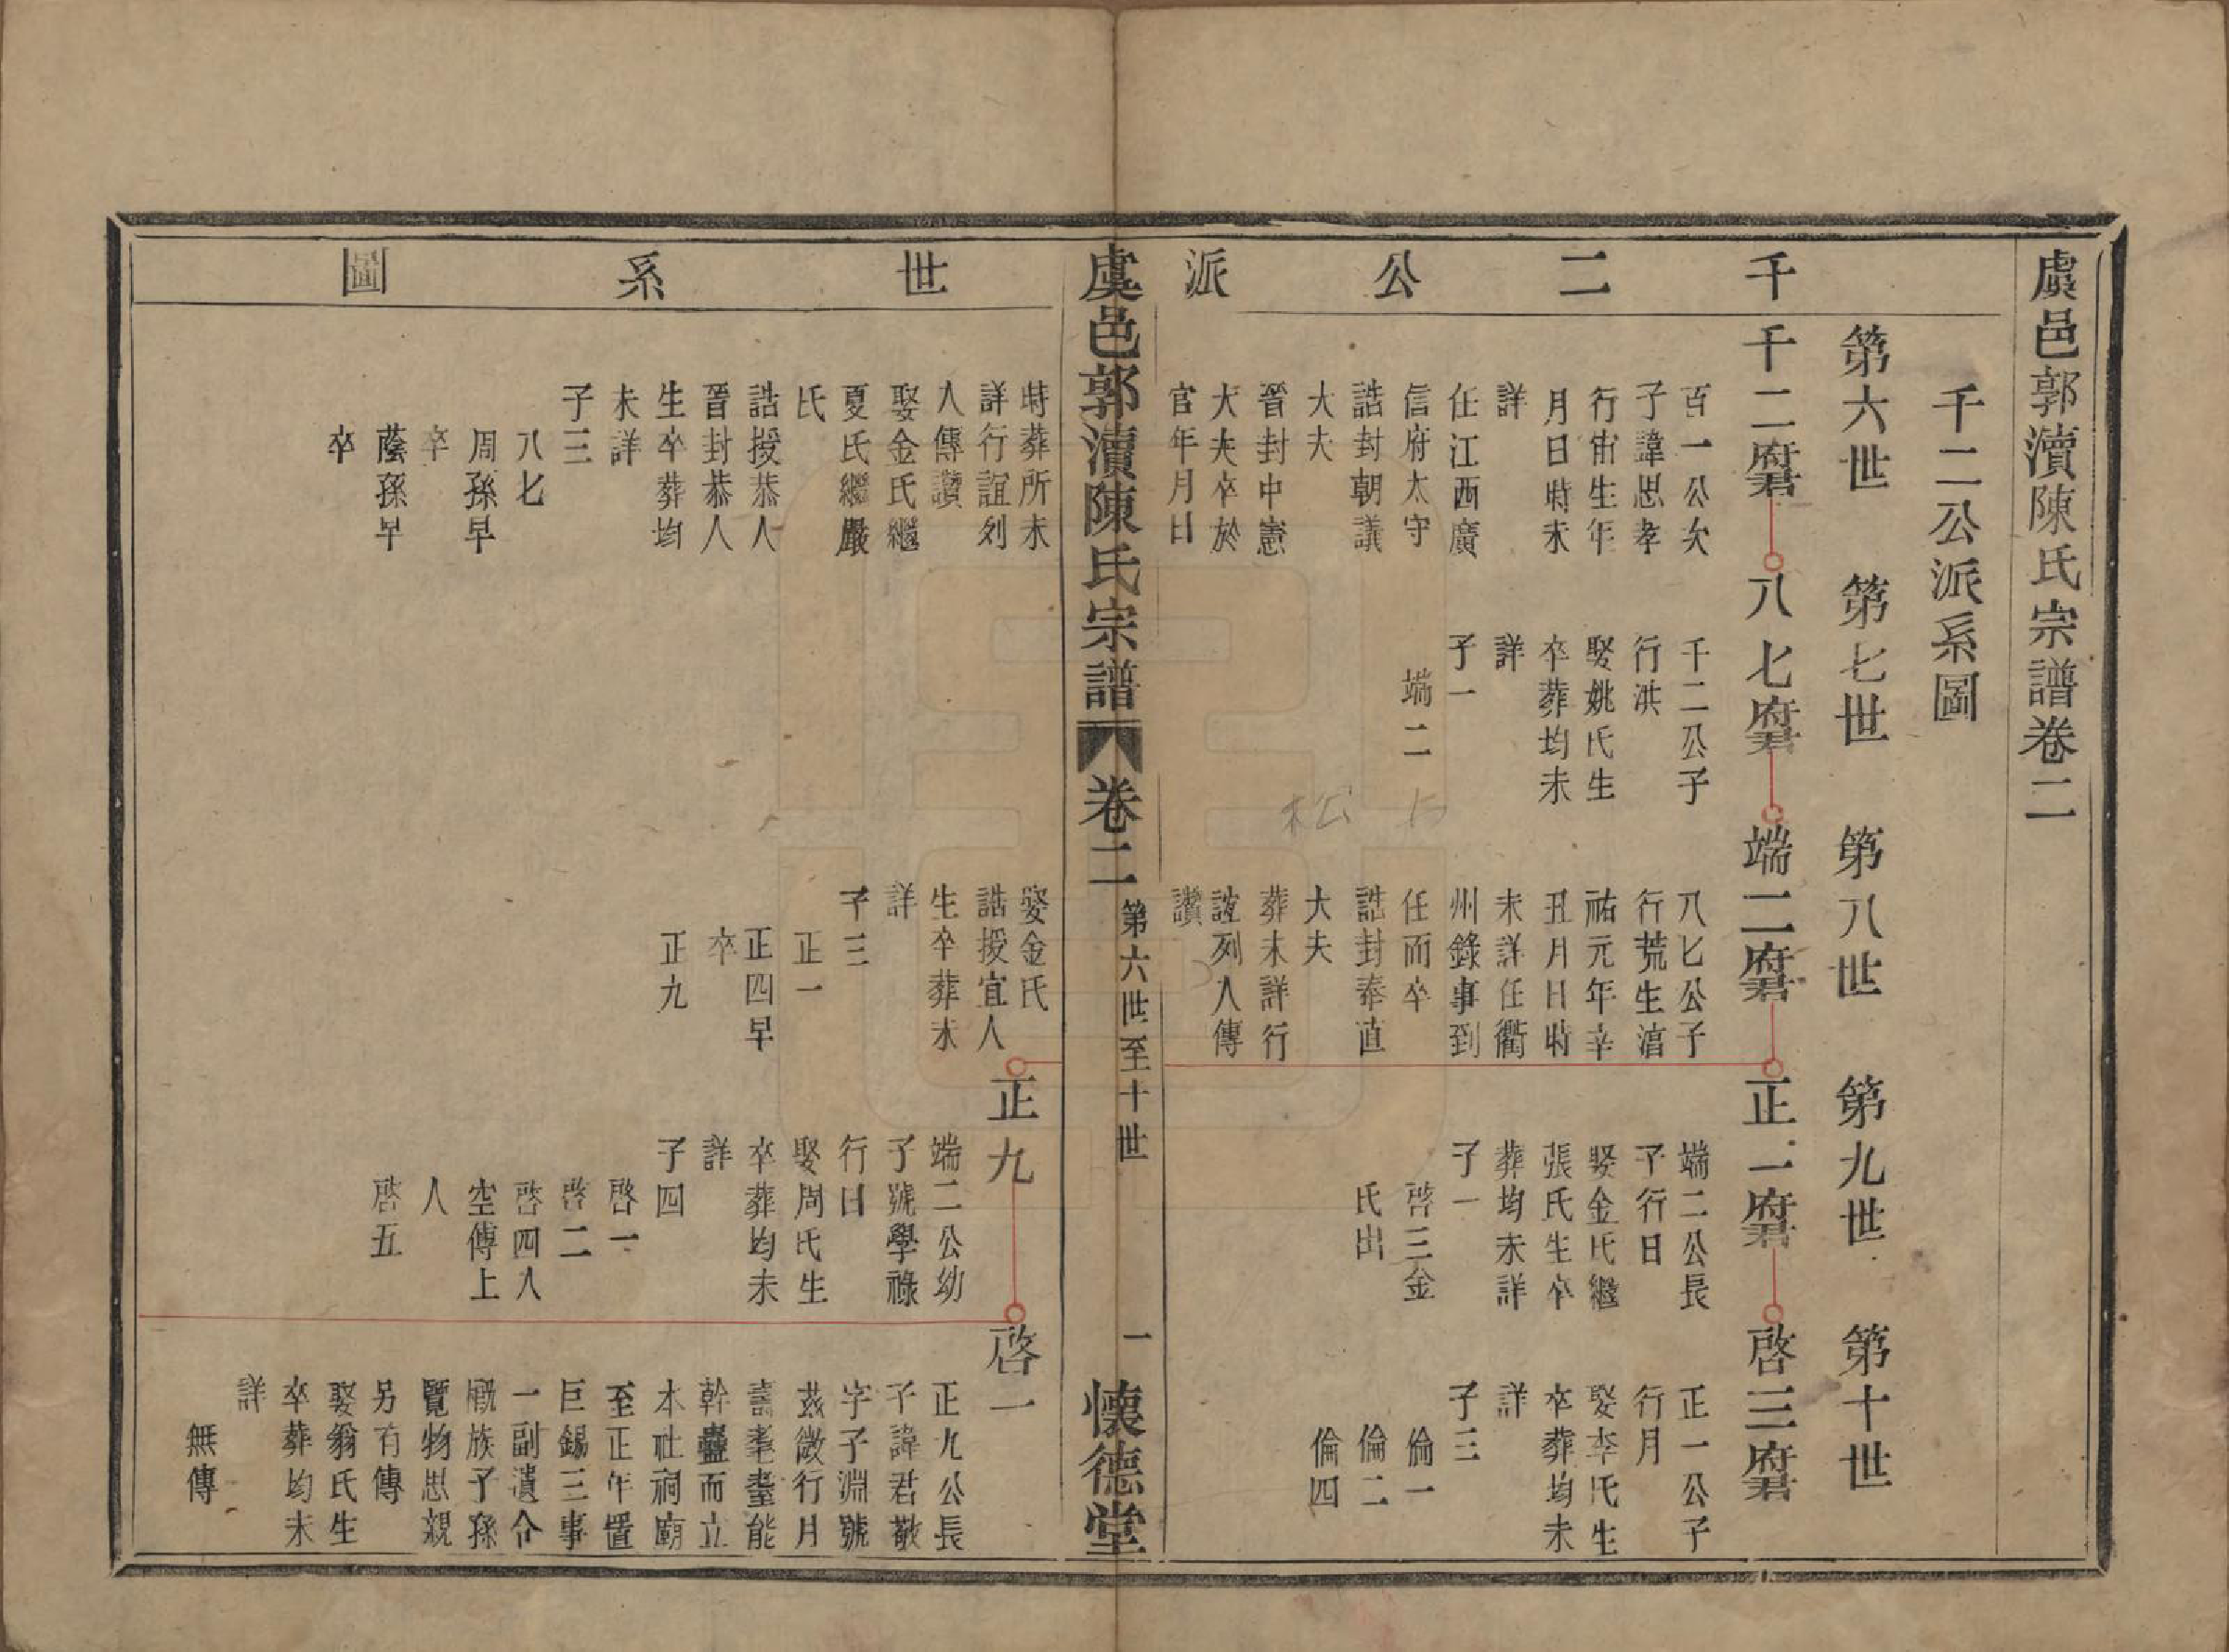 虞邑郭瀆陳氏宗譜卷二
千二公派系圖
千二公派
第六世
第七世
第八世
第九世
第十世
千二府君
八七府君
端二府君
正一府君
啓三府君
百一公次
子諱思孝
行宙生年
月日時未
詳
任江西廣
信府太守
誥封朝議
大夫
晉封中憲
大夫卒於
官年月日
千二公子
行洪
娶姚氏生
卒葬均未
詳
子一
端二
八七公子
行荒生湻
祐元年辛
丑月日時
未詳任衢
州錄事到
任而卒
誥封奉直
大夫
葬未詳行
誼列人傳
讚
端二公長
子行日
娶金氏繼
張氏生卒
葬均未詳
子一
啓三金
氏出
正一公子
行月
娶李氏生
卒葬均未
詳
子三
倫一
倫二
倫四
虞邑郭瀆陳氏宗譜
卷二
第六世至十世
一
懷德堂
世系圖
時葬所未
詳行誼列
人傳讚
娶金氏繼
夏氏繼嚴
氏
誥授恭人
晉封恭人
生卒葬均
未詳
子三
八七
周孫早
卒
蔭孫早
卒
娶金氏
誥授宜人
生卒葬未
詳
子三
正一
正四早
卒
正九
正九
端二公幼
子號學祿
行日
娶周氏生
卒葬均未
詳
子四
啓一
啓二
啓四人
空傳上
人
啓五
啓一
正九公長
子諱君敬
字子淵號
茲微行月
壽耄耋能
幹蠱而立
本社祠廟
至正年置
巨錫三事
一副遺令
厩族子孫
覽物思親
另有傳
娶翁氏生
卒葬均未
詳
無傳